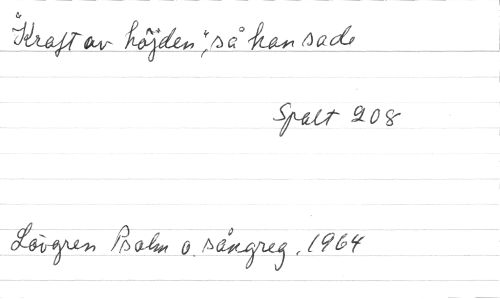 "Kraft av höjden", så han sade
Spalt 208
Lövgren Psalm o. sångreg. 1964